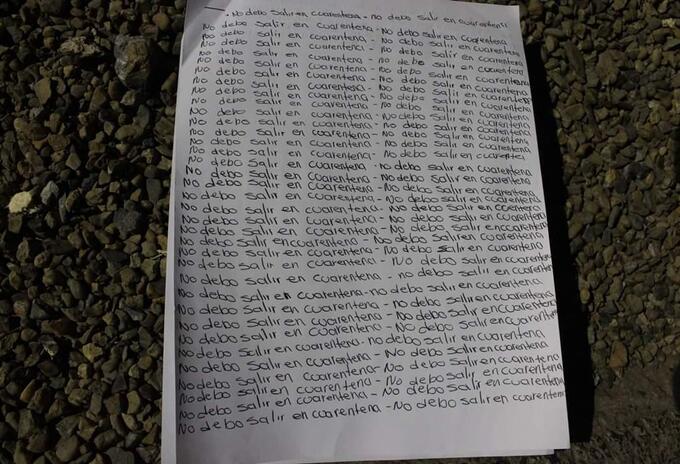 - No debo salir en cuarentena - no debo salir en cuarentena
No debo salir en cuarentena - No debo salir en cuarentena
No debo salir en cuarentena - No debo salir en cuarentena
No debo salir en cuarentena - No debo salir en cuarentena
No debo salir en cuarentena - no debo salir en cuarentena
No debo salir en cuarentena - no debo salir en cuarentena
No debo salir en cuarentena - No debo salir en cuarentena
No debo salir en cuarentena - No debo salir en cuarentena
No debo salir en cuarentena - no debo salir en cuarentena
No debo salir en cuarentena - No debo salir en cuarentena
No debo salir en cuarentena - no debo salir en cuarentena
No debo salir en cuarentena - no debo salir en cuarentena
No debo salir en cuarentena - No debo salir en cuarentena
No debo salir en cuarentena - no debo salir en cuarentena
No debo salir en cuarentena - No debo salir en cuarentena
No debo salir en cuarentena - No debo salir en cuarentena
No debo salir en cuarentena - No debo salir en cuarentena
No debo salir en cuarentena - No debo salir en cuarentena
No debo salir en cuarentena - No debo salir en cuarentena
No debo salir en cuarentena - No debo salir en cuarentena
No debo salir en cuarentena - No debo salir en cuarentena
No debo salir en cuarentena - no debo salir en cuarentena
No debo salir en cuarentena - no debo salir en cuarentena
No debo salir en cuarentena - no debo salir en cuarentena
No debo salir en cuarentena - No debo salir en cuarentena
No debo salir en cuarentena - No debo salir en cuarentena
No debo salir en cuarentena - no debo salir en cuarentena
No debo salir en cuarentena - No debo salir en cuarentena
No debo salir en cuarentena - No debo salir en cuarentena
No debo salir en cuarentena - No debo salir en cuarentena
No debo salir en cuarentena - No debo salir en cuarentena
No debo salir en cuarentena - No debo salir en cuarentena